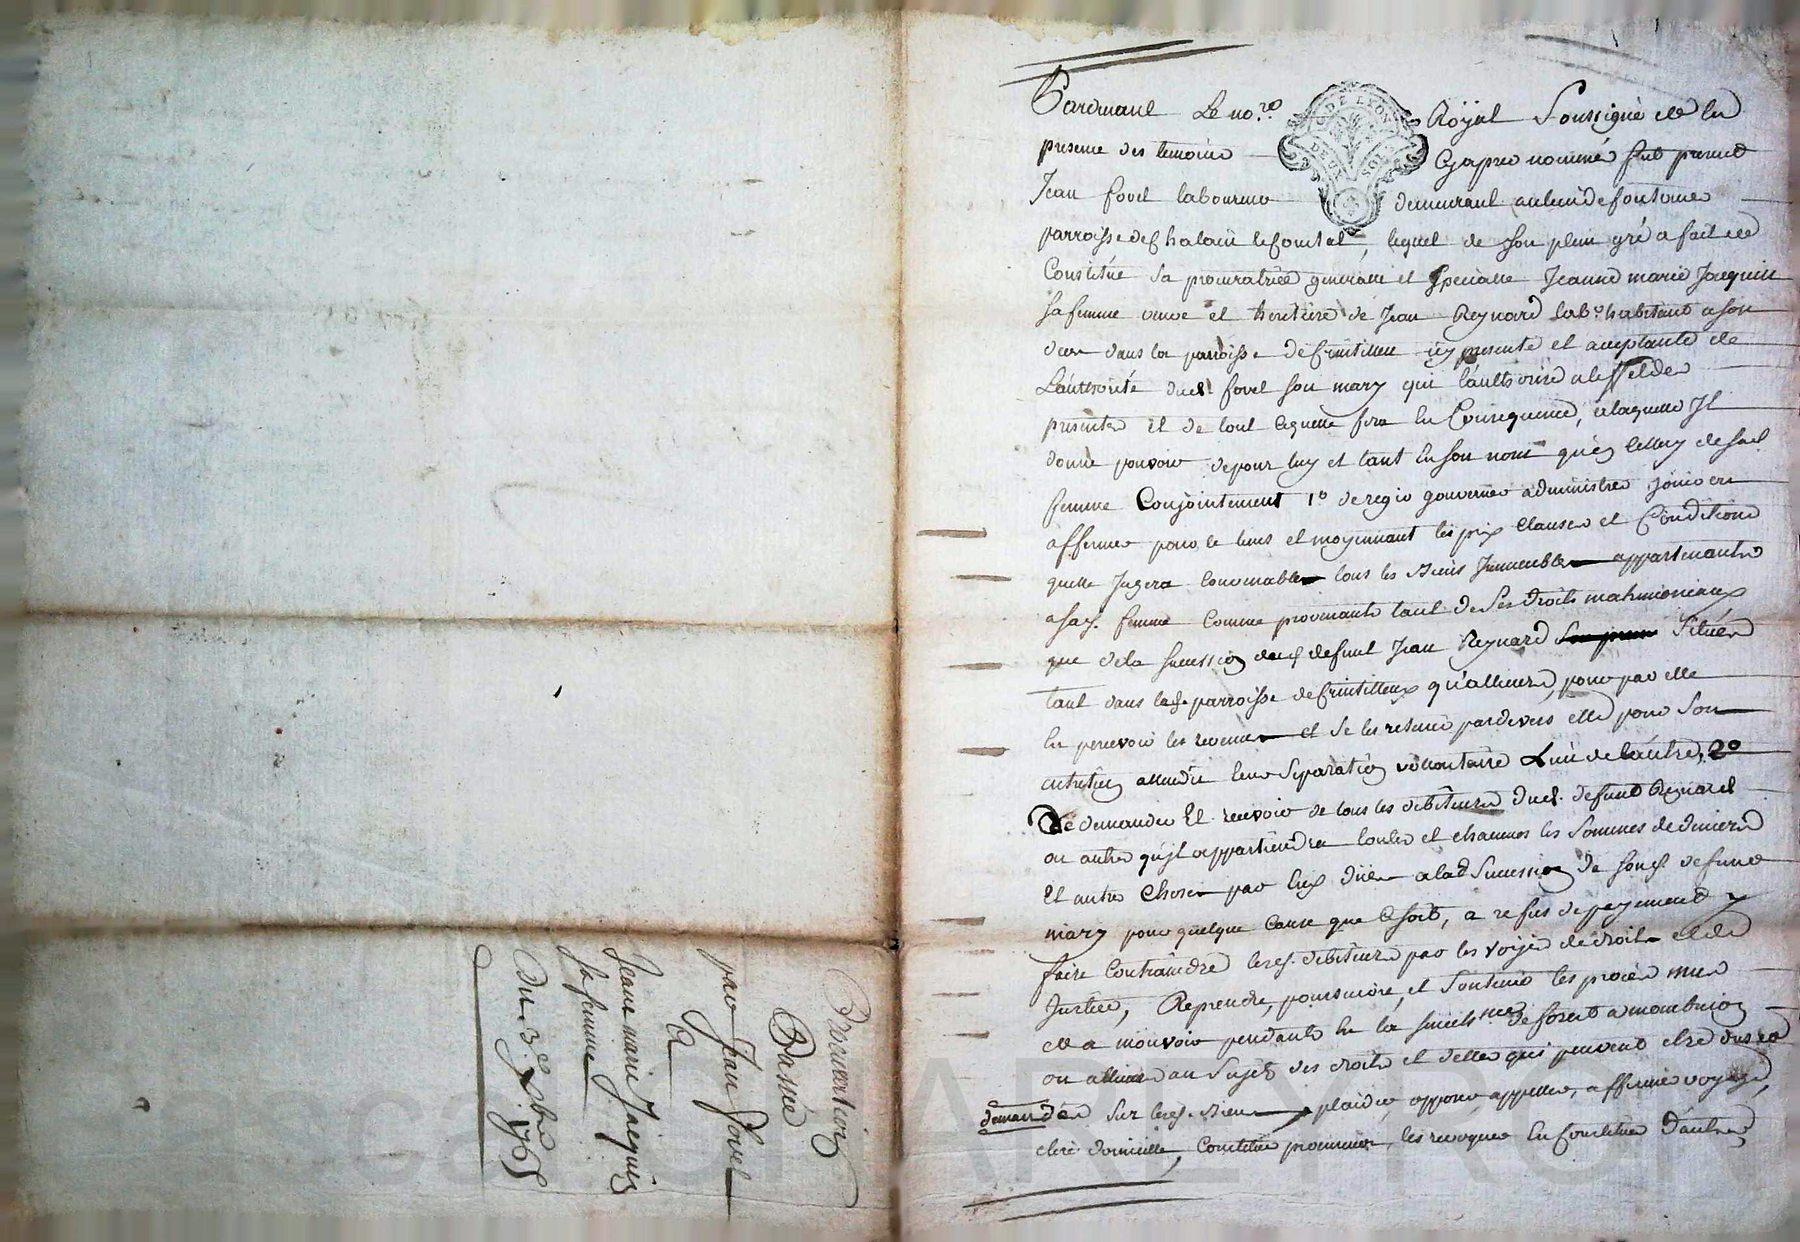 Procuration
Passée
par Jean fovel
a
Jeanne marie Jacquin
sa femme
Du 3e 7bre 1765
G. DE LYON
DEUX SOLS
Pardevant Le no.re Royal Soussigné et en
presence des temoins Cy apres nommés fut present
Jean fovel laboureur demeurant au lieu de fontanes
parroisse de Chalain le Comtal, lequel de son plein gré a fait et
Constitué sa procuratrice generalle et Specialle Jeanne marie Jacquin
sa femme veuve et heritiere de Jean Reynard lab.r habitant a son
deces dans la parroisse de Crintilleu icy presente et acceptante de
L'authorité dud. fovel son mary qui l'authorise a l'effet des
presentes et de tout ce quelle fera en Consequence, a laquelle Il
donne pouvoir de pour luy et tant en son nom qu'en celluy de sad.
femme Conjointement 1o de regir gouverner administrer jouir et
affermer pour le tems et moyennant les prix Clauses et Conditions
quelle Jugera Convenables tous les biens Immeubles appartenants
a sad. femme Comme provenants tant de Ses droits matrimoniaux
que de la Succession dud. defunt Jean Reynard Situés
tant dans lad. parroisse de Crintilleux qu'allieurs, pour par elle
en percevoir les revenus et se les retenir pardevers elle pour Son
entretien attendu leur Separation vollontaire L'un de L'autre, 2o
De demander Et recevoir de tous les debiteurs dud. defunt Reynard
ou autres qu'il appartiendra toutes et chacunes les Sommes de deniers
Et autres Choses par Eux dües a lad. Succession de sond. defunt
mary pour quelque Cause que Ce soit, a refus de payement y
faire Contraindre lesd. debiteurs par les voyes de droit et de
Justice, Reprendre, poursuivre, et Soutenir les procés mus
et a mouvoir pendants en la de forest a montbrison
ou allieurs au Sujet des droits et dettes qui peuvent etre dus et
demandés Sur lesd. biens plaider, opposer, appeller, affirmer voyage,
elire domicille, Constituer procureur, les revoquer En Constituer d'autres,